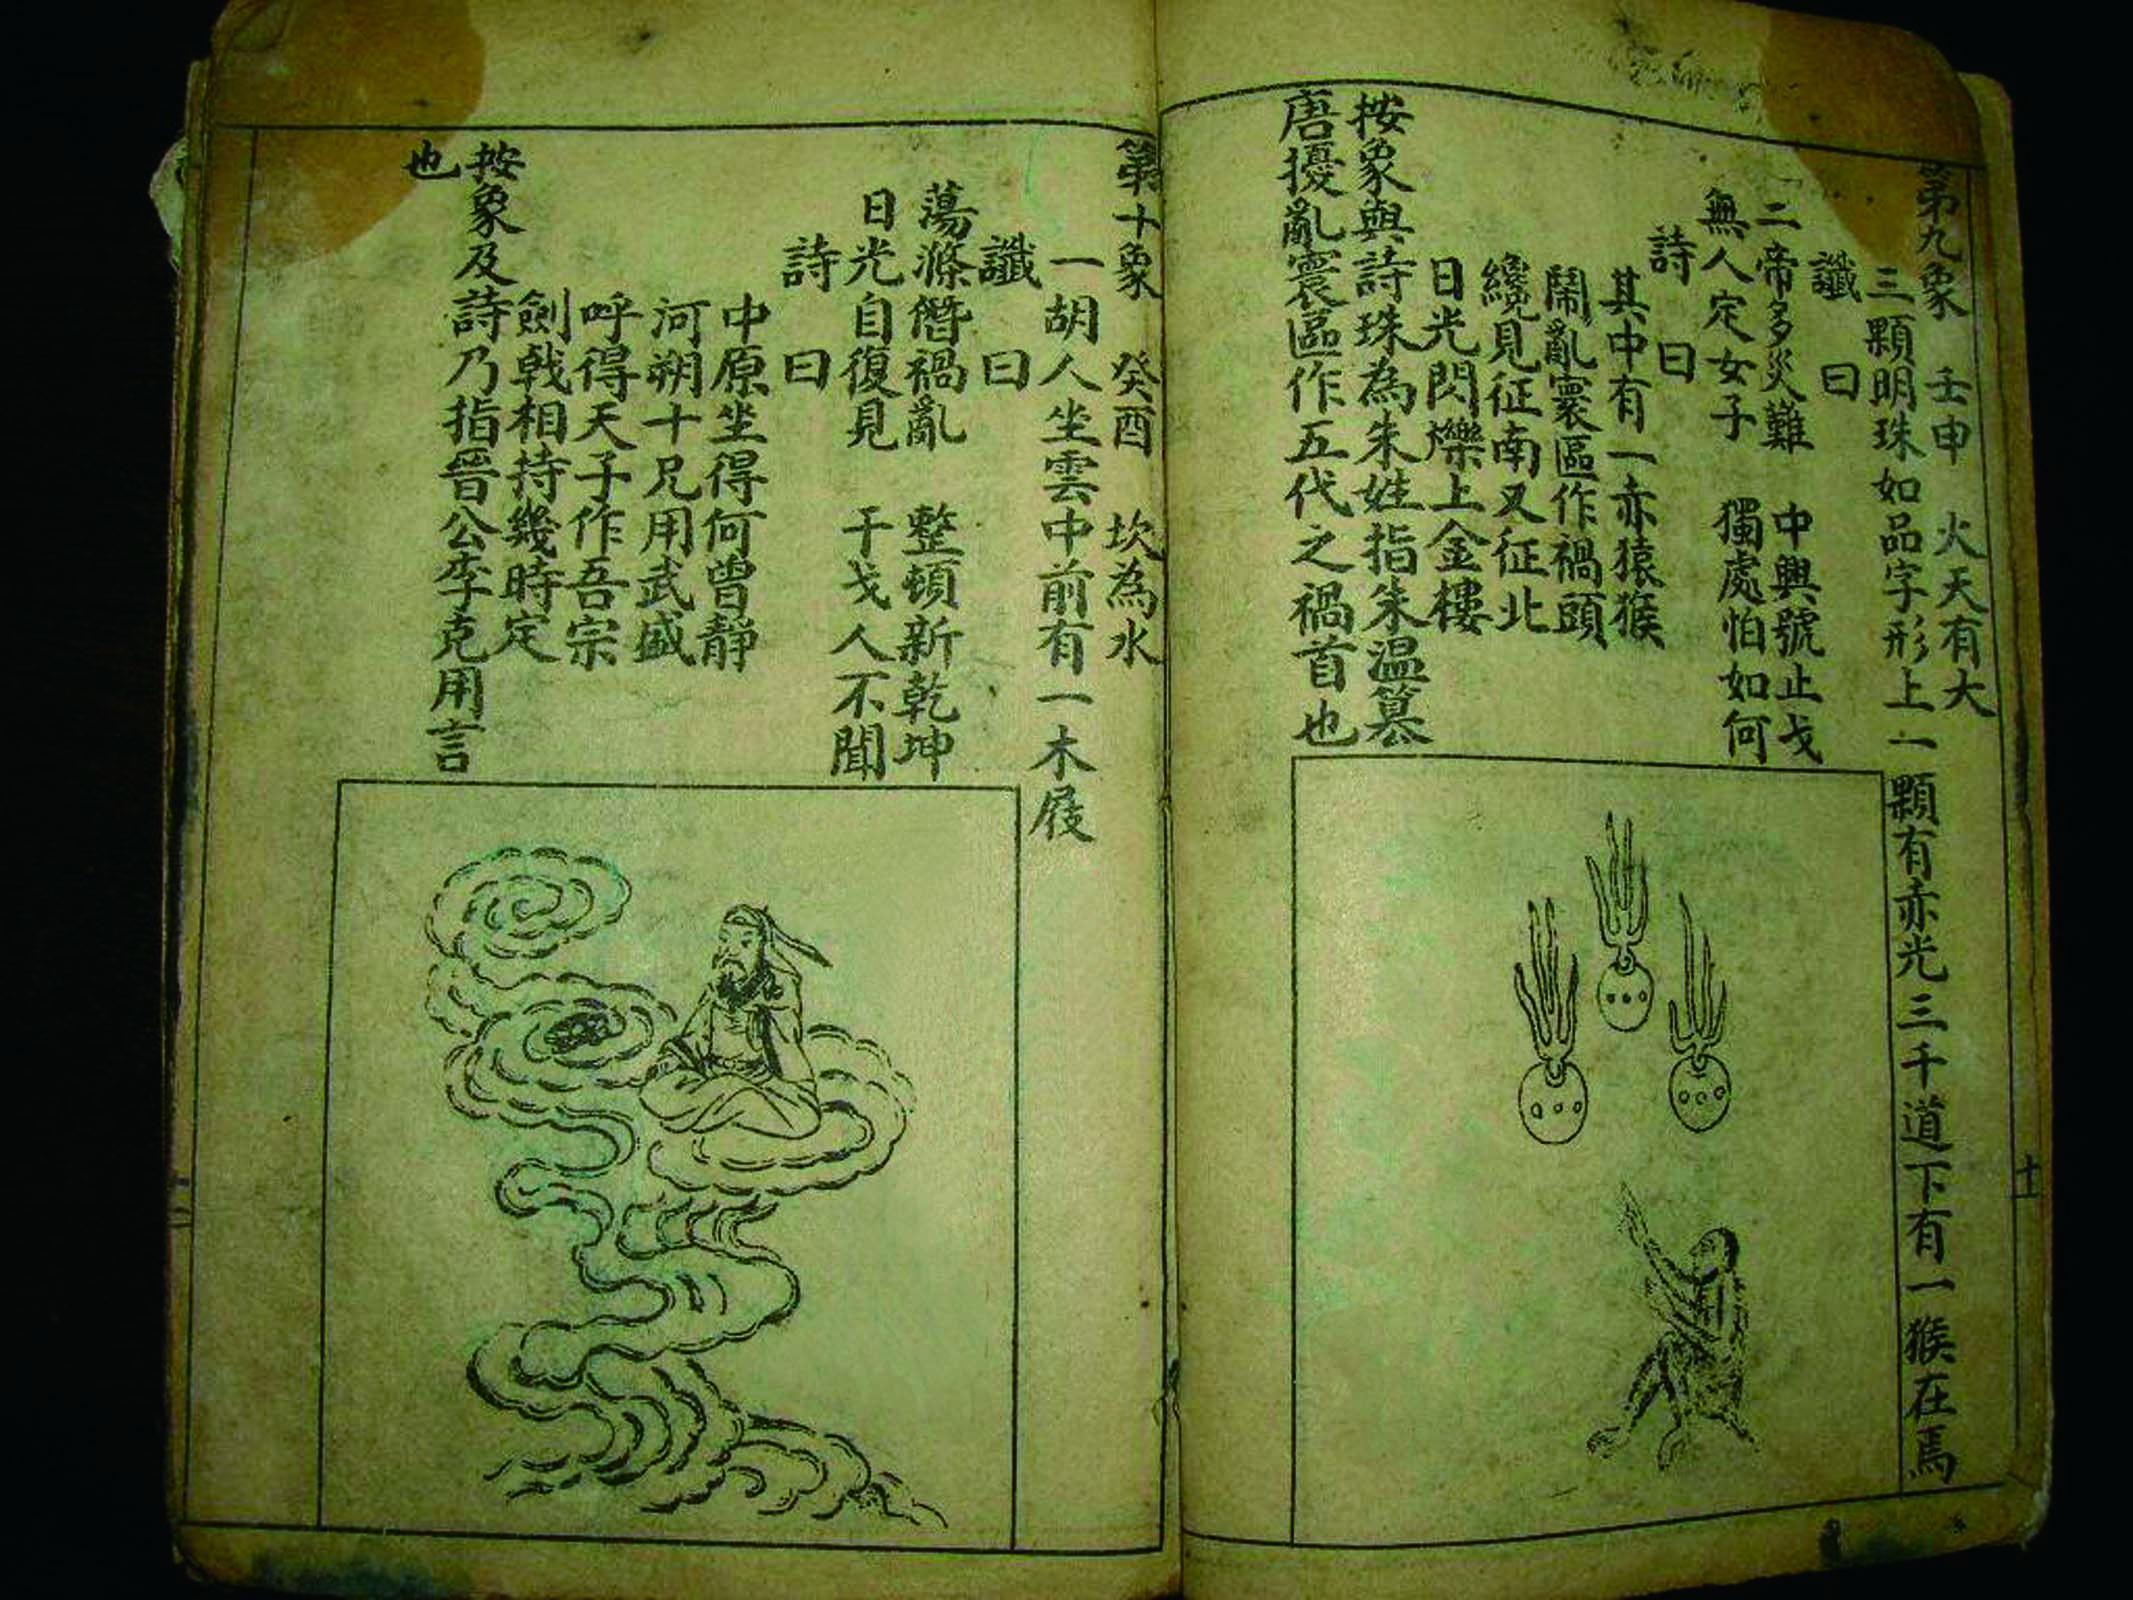 第九象 壬申 火天有大
三顆明珠如品字形上一顆有赤光三千道下有一猴在焉
讖曰
二帝多災難 中興號止戈
無人定女子 獨處怕如何
詩曰
其中有一赤猿猴
鬧亂寰區作禍頭
纔見征南又征北
日光閃爍上金樓
按象與詩珠為朱姓指朱溫篡
唐擾亂寰區作五代之禍首也
十
第十象 癸酉 坎為水
一胡人坐雲中前有一木屐
讖曰
蕩滌僭禍亂 整頓新乾坤
日光自復見 干戈人不聞
詩曰
中原坐得何曾靜
河朔十兄用武盛
呼得天子作吾宗
劍戟相持幾時定
按象及詩乃指晉公李克用言
也